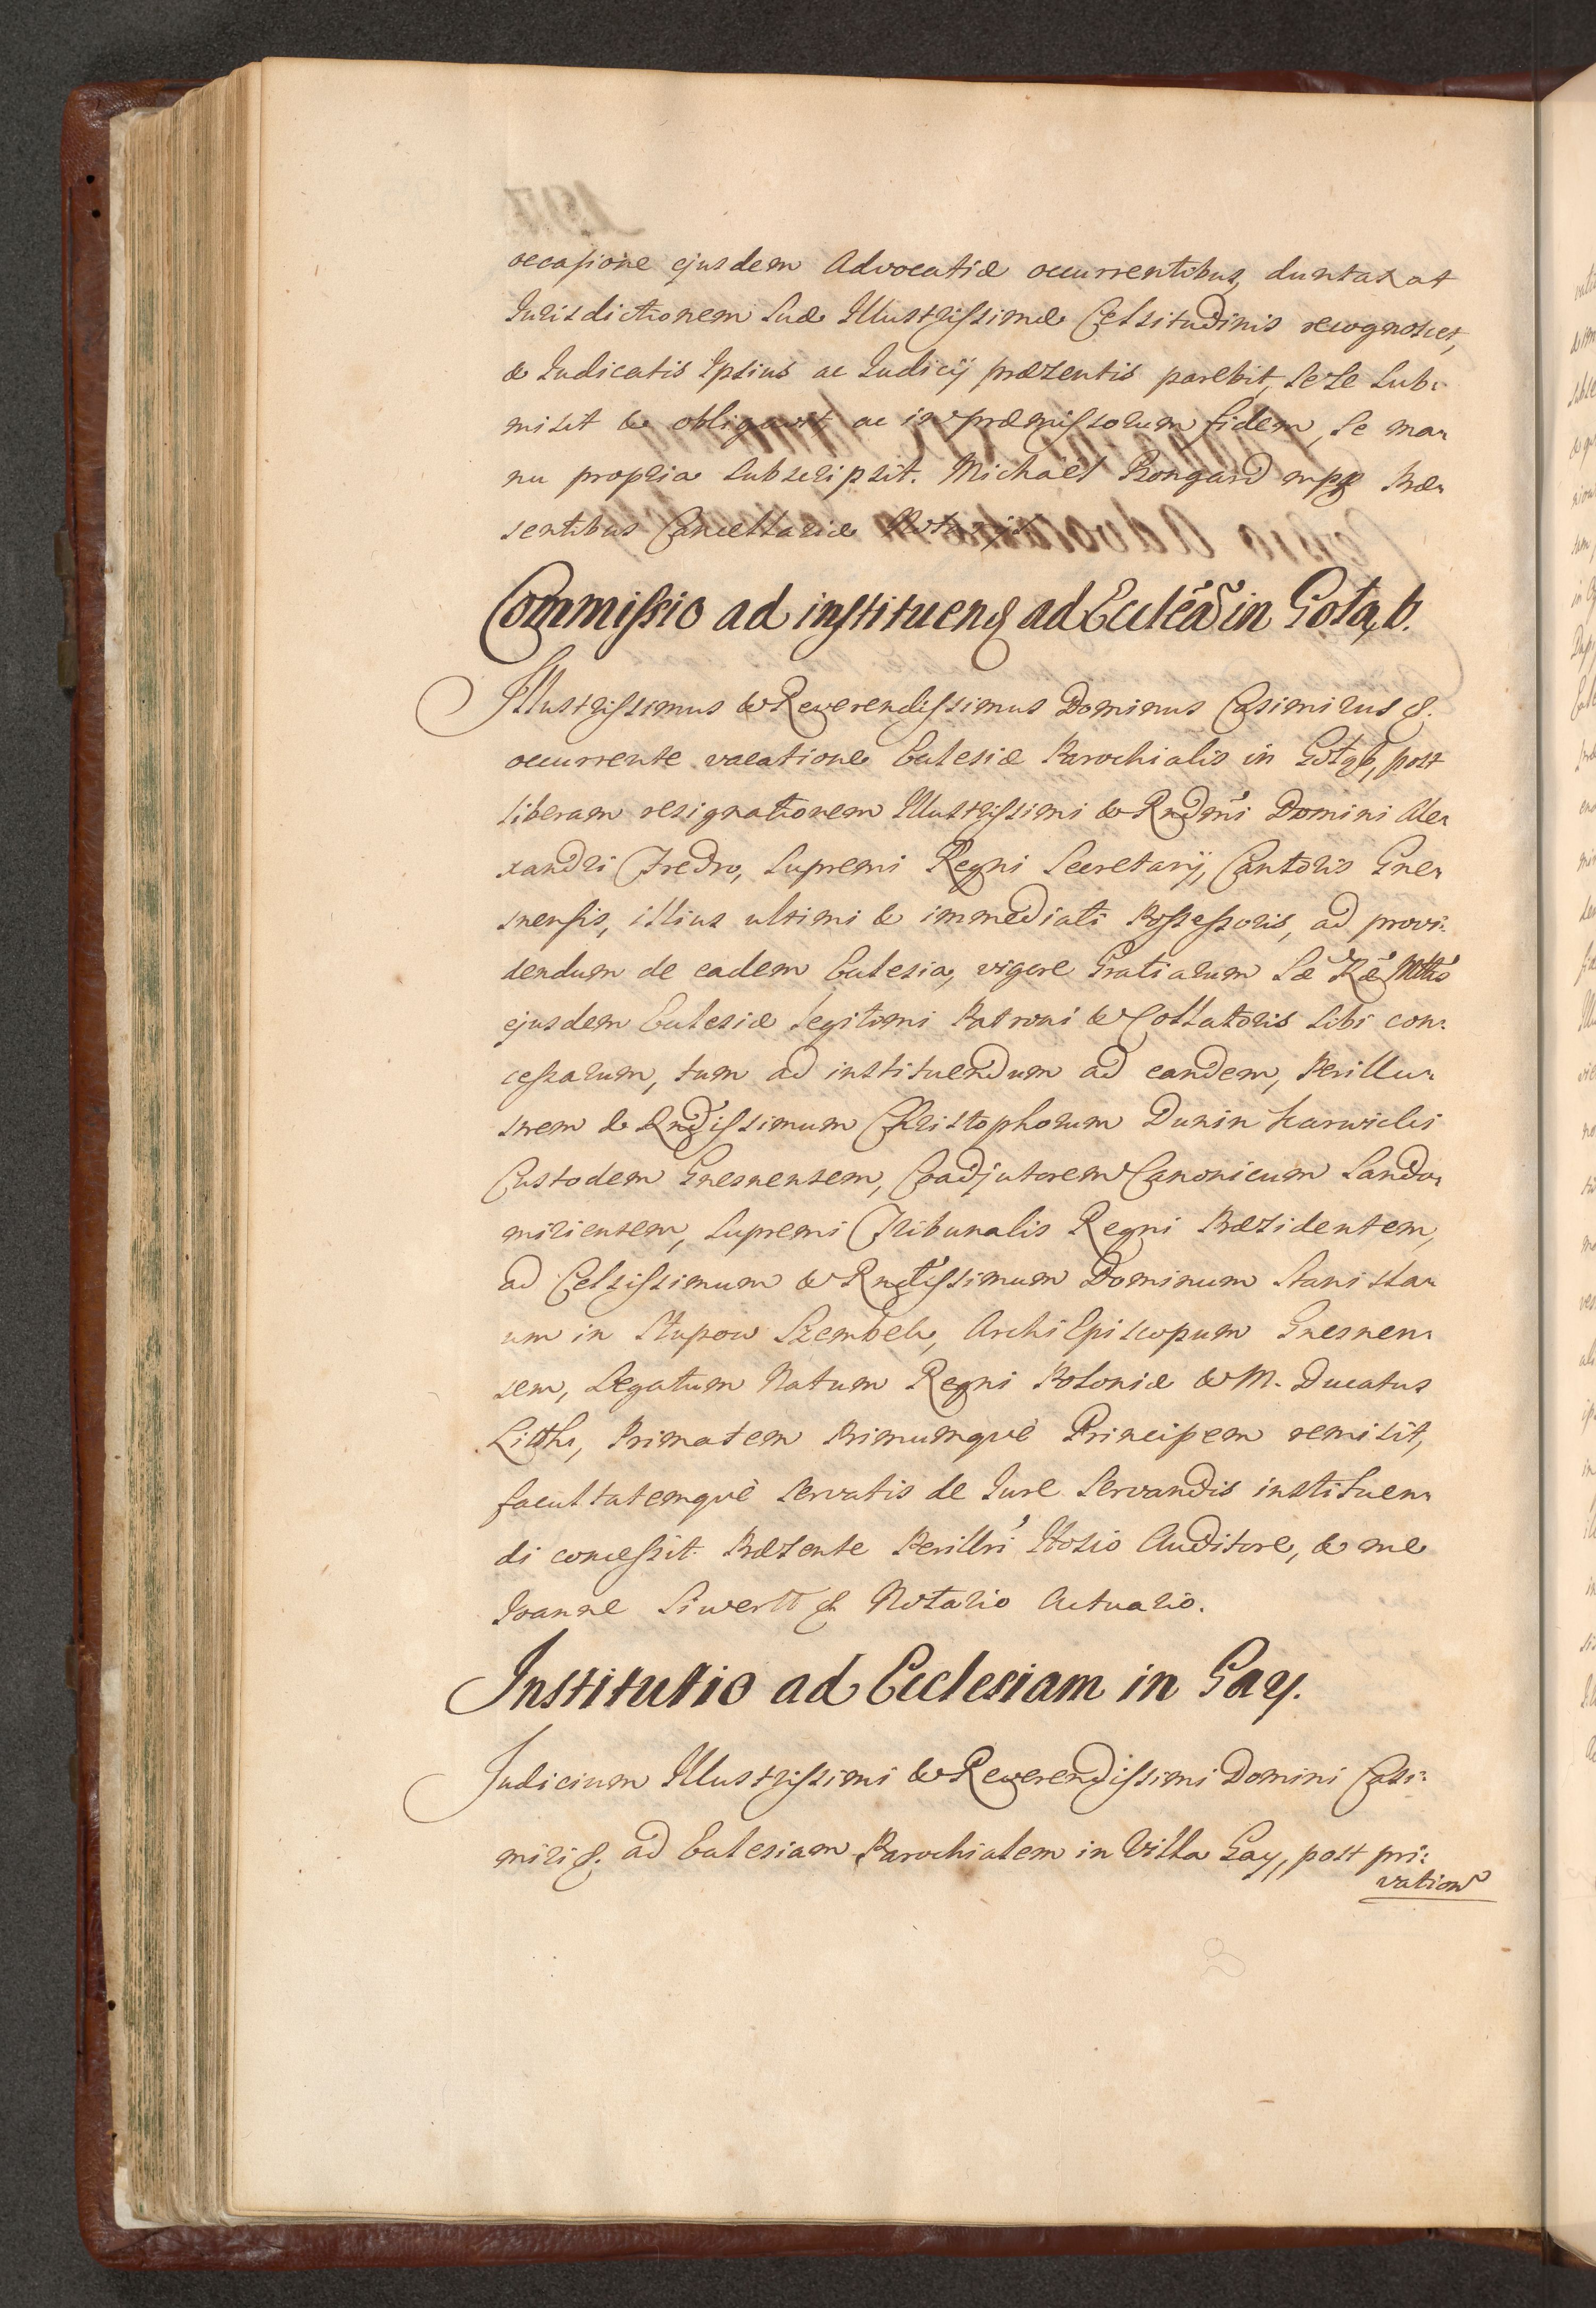 occasione ejusdem Advocatiæ occurrentibus, duntaxat
Jurisdictionem Suæ Illustrissimæ Celsitudinis recognoscet,
& Judicatis Ipsius ac Judicij præsentis parebit, sese sub:
misit & obligavit, ac in præmissorum fidem, se ma:
nu propria subscripsit. Michaël Bongard mpp Præ:
sentibus Cancellariæ Notarijs
Commissio ad instituend ad Eccleã in Gołąb.
Illustrissimus & Reverendissimus Dominus Casimirus &.
occurrente vacatione Ecclesiæ Parochialis in Gołąb, post
liberam resignationem Illustrissimi & Rndmi Domini Ale:
xandri Fredro, Supremi Regni Secretarij, Cantoris Gne:
snensis, illius ultimi & immediati Possessoris, ad provi:
dendum de eadem Ecclesia, vigore Gratiarum Sæ Ræ Mttis
ejusdem Ecclesiæ legitimi Patroni & Collatoris sibi con:
cessarum, tum ad instituendum ad eandem, Perillu:
strem & Rndissimum Christophorum Dunin Karwicki
Custodem Gnesnensem, Coadjutorem Canonicum Sando:
miriensem, Supremi Tribunalis Regni Præsidentem,
ad Celsissimum & Rndissimum Dominum Stanisla:
um in Słupow Szembek, Archi Episcopum Gnesnen:
sem, Legatum Natum Regni Poloniæ & M. Ducatus
Litth, Primatem Primumquè Principem remisit,
facultatemquè servatis de Jure servandis instituen:
di concessit. Præsente Perillri Hosio Auditore, & me
Joanne Siwertt & Notario Actuario.
Institutio ad Ecclesiam in Gay.
Judicium Illustrissimi & Reverendissimi Domini Casi:
miri &. ad Ecclesiam Parochialem in Villa Gay, post pri:
vation